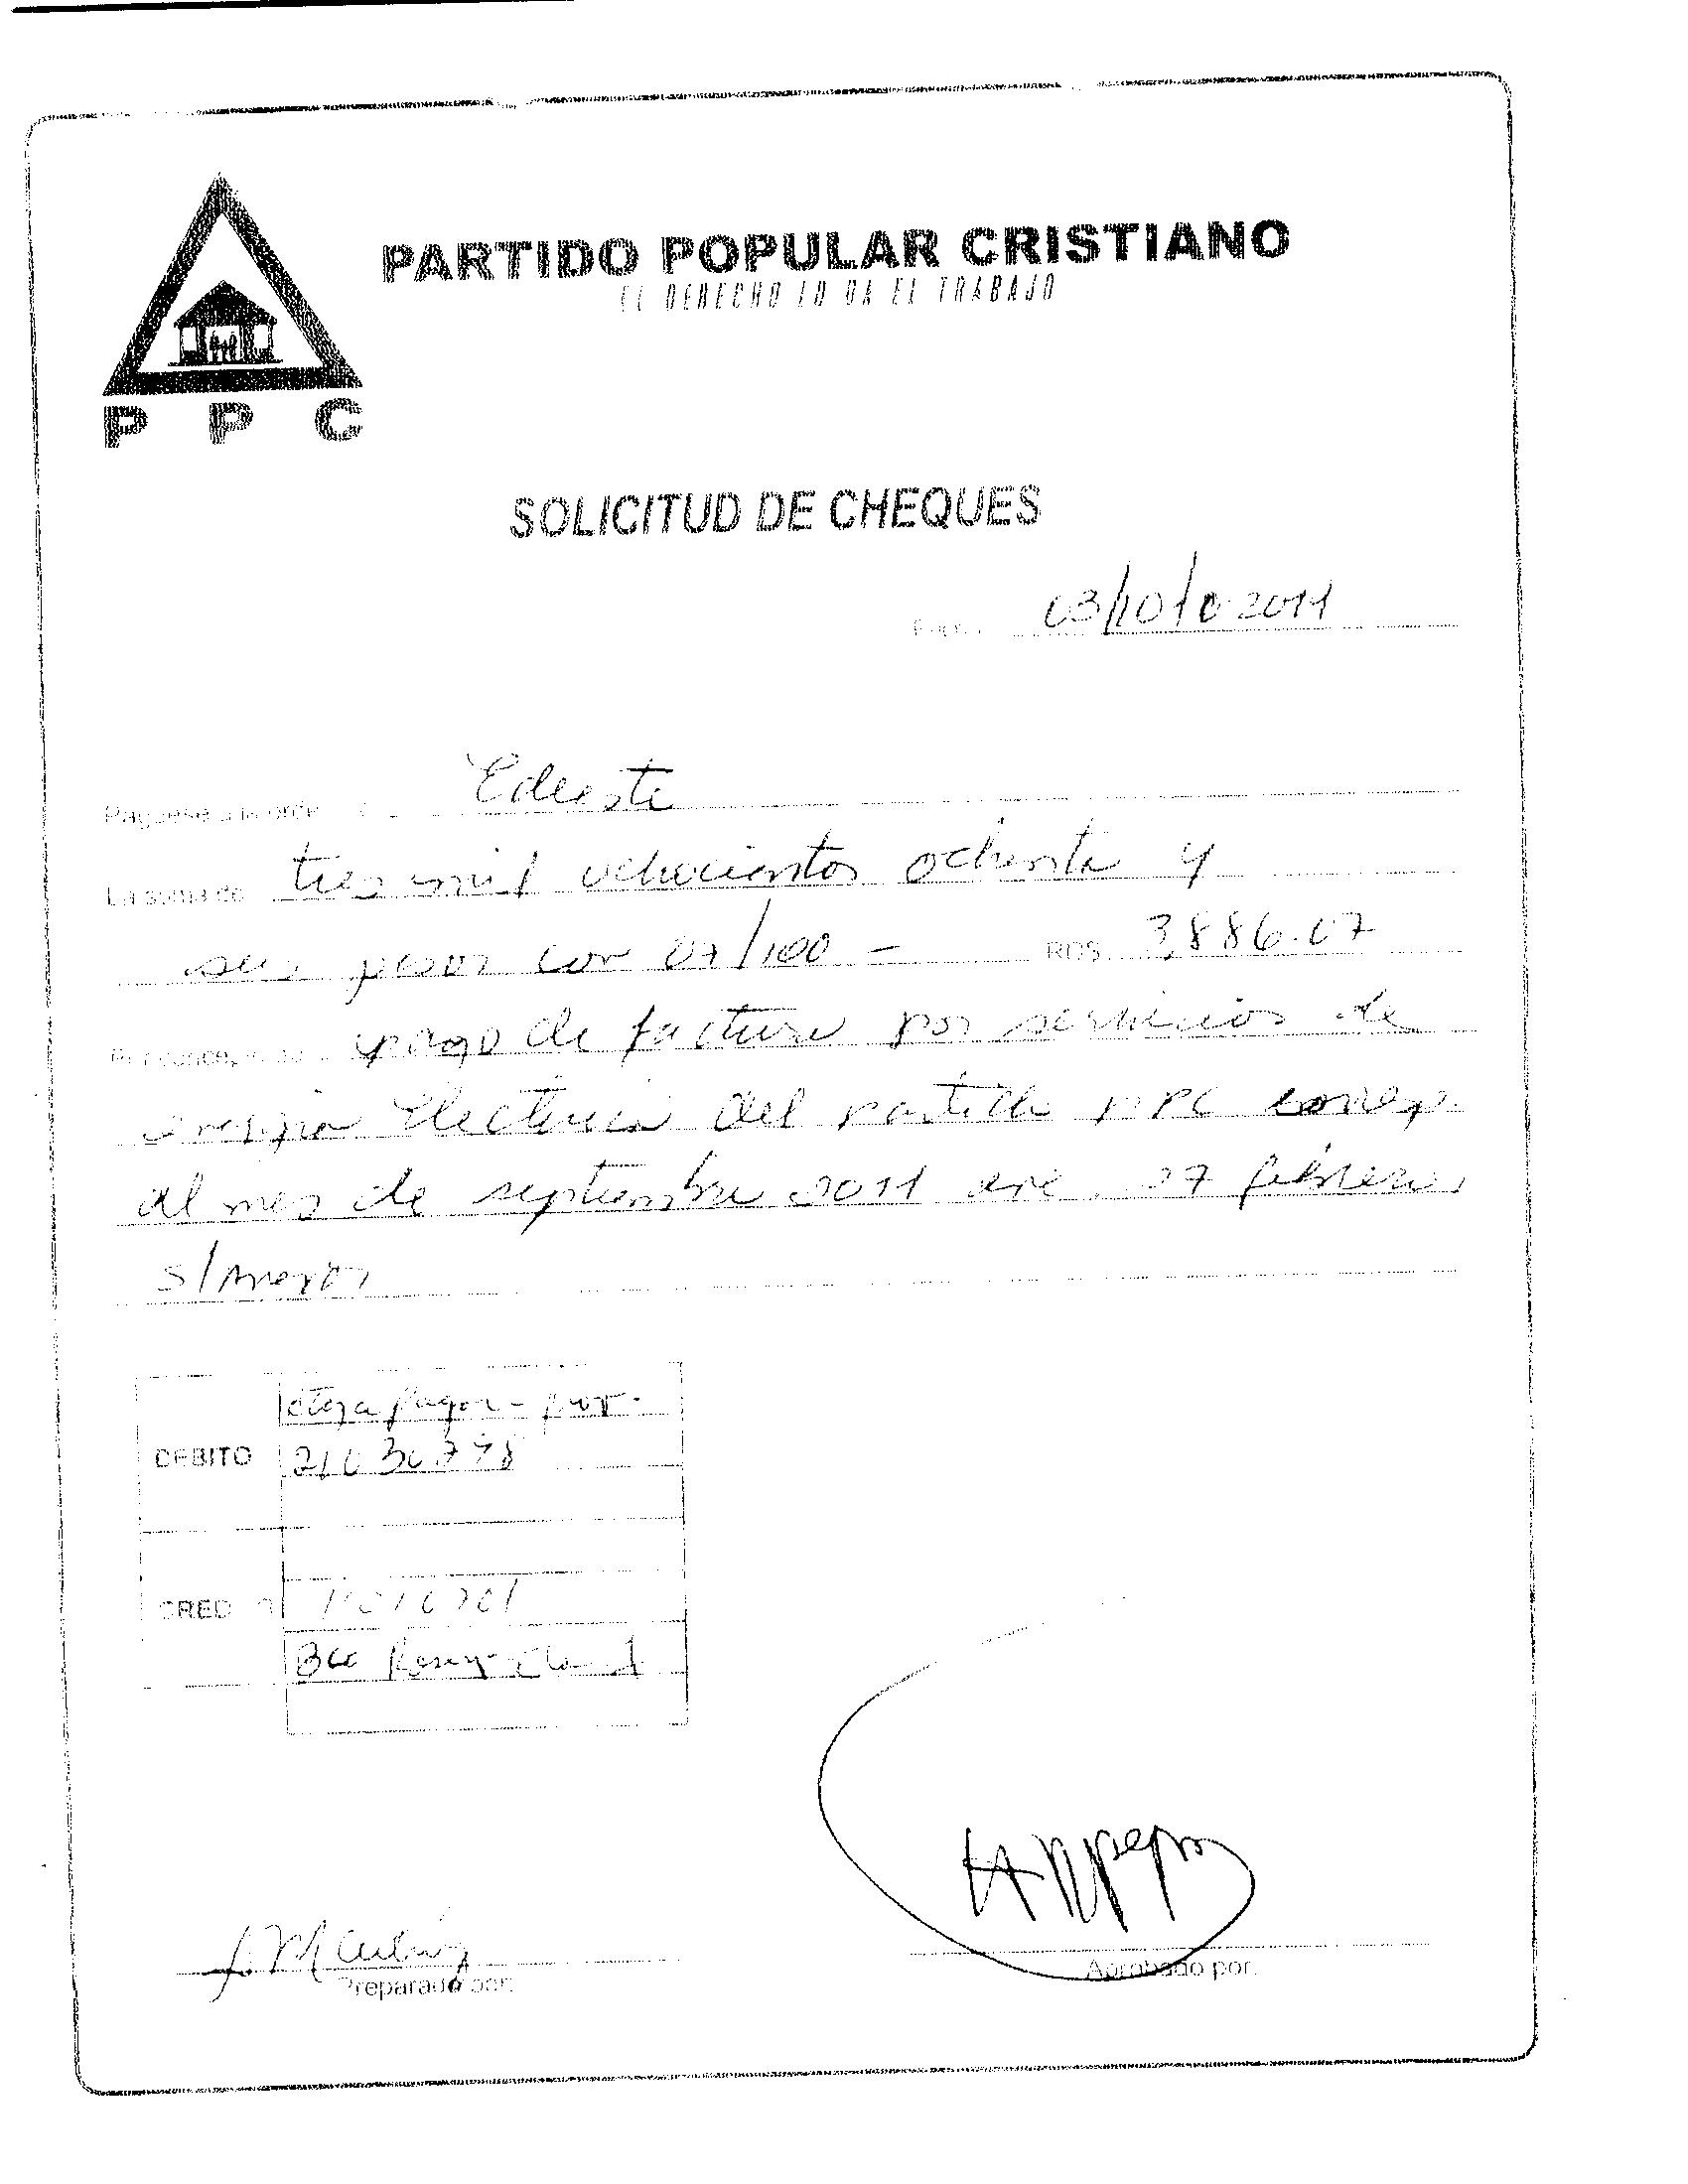 PARTIDO POPULAR CRISTIANO
EL DERECHO LO DA EL TRABAJO
P P C
SOLICITUD DE CHEQUES
Fecha 03/10/2011
Páguese a la orden Edeeste
La suma de tres mil ochocientos ochenta y
seis pesos con 07/100 = RD$ 3,886.07
Por concepto de pago de factura por servicios de
energía Electrica del partido PPC corresp.
al mes de septiembre 2011 ave. 27 febrero,
s/anexos
ctas x pagar - prov.
DEBITO 21030778
CREDITO
Bco
Preparado por:
Aprobado por: